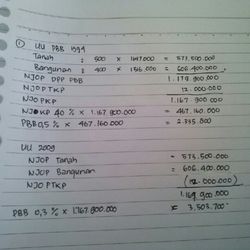 ① UU PBB 1994
Tanah : 500 × 1.147.000 = 573.500.000
Bangunan : 400 × 1.516.000 = 606.400.000
NJOP DPP PBB 1.179.900.000
NJOPTKP 12.000.000
NJOPKP 1.167.900.000
NJOKP 40 % × 1.167.900.000 = 467.160.000
PBB 0,5 % × 467.160.000 = 2.335.800
UU 2009
NJOP Tanah = 573.500.000
NJOP Bangunan = 606.400.000
NJOPTKP (12.000.000)
1.167.900.000
PBB 0,3 % × 1.167.900.000 = 3.503.700